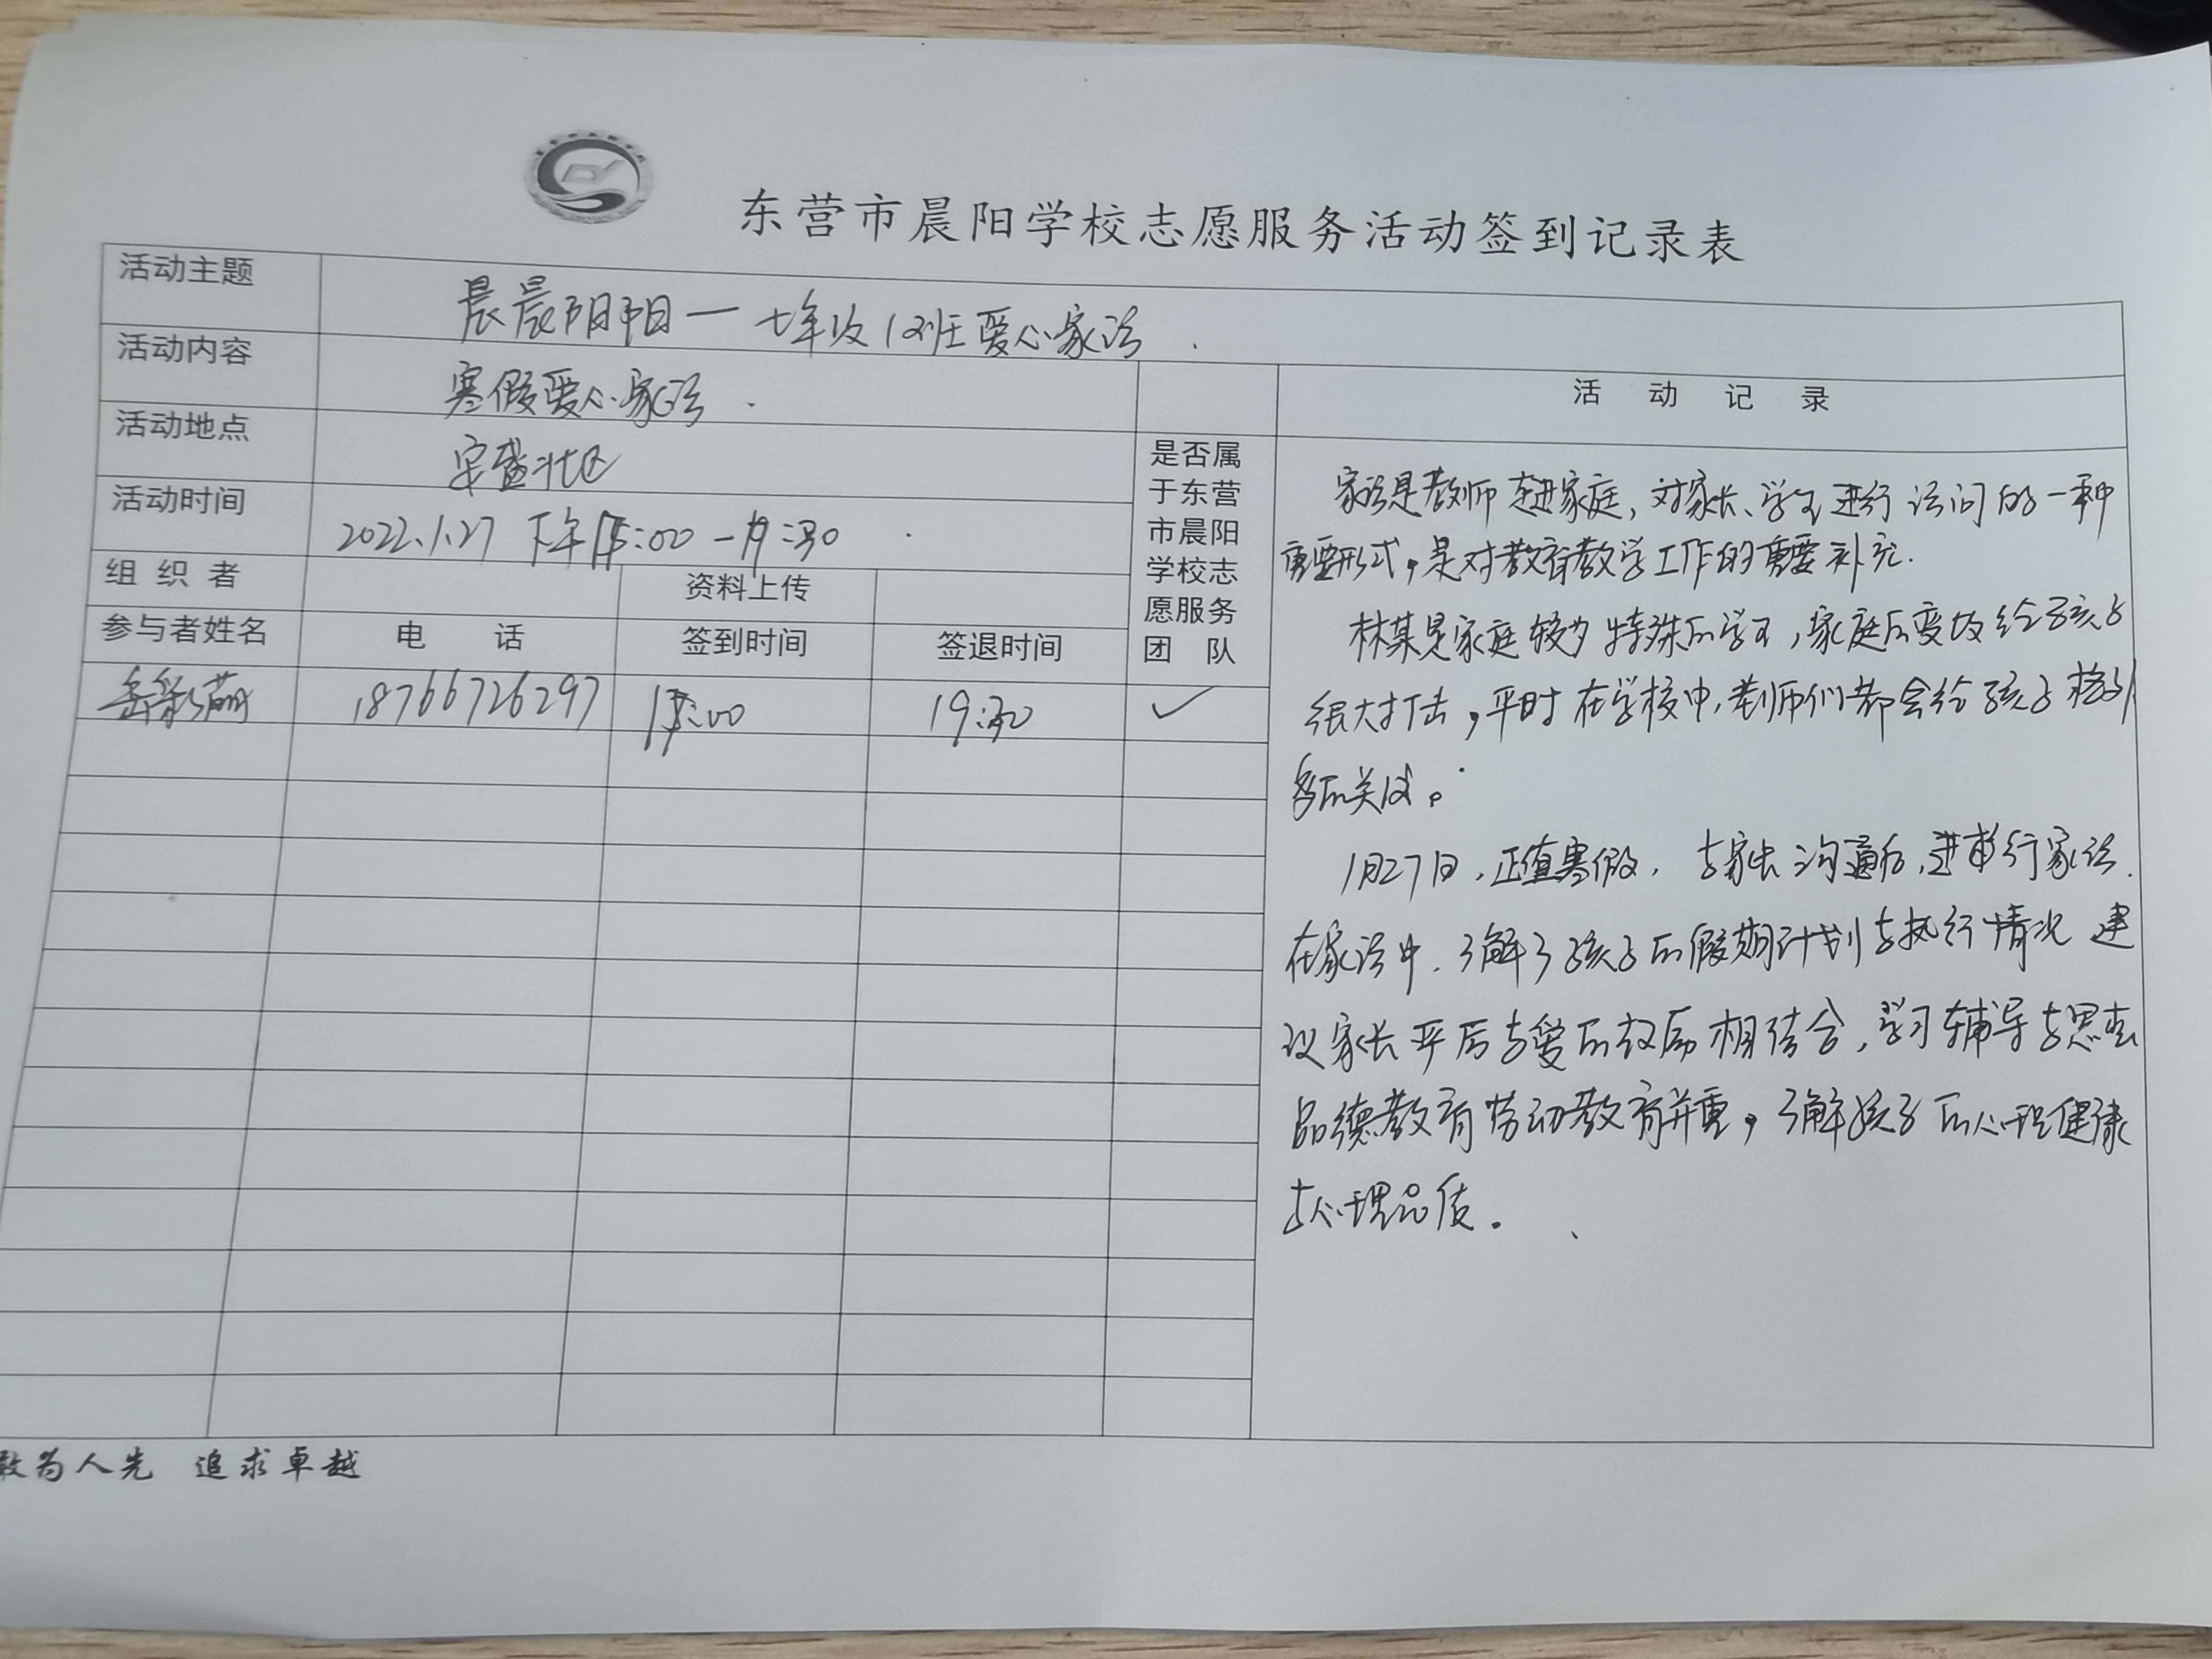 东营市晨阳学校志愿服务活动签到记录表
活动主题 晨晨阳阳一七年级12班爱心家访.
活动内容 寒假爱心家访.
活动地点 宏盛北区
活动时间 2022.1.27 下午 :00-19:30
组织者 资料上传
参与者姓名 电 话 签到时间 签退时间
岳彩萌 18766726297 :00 19:30 ✓
是否属
于东营
市晨阳
学校志
愿服务
团 队
活 动 记 录
家访是教师走进家庭,对家长、学生进行访问的一种
重要形式,是对教育教学工作的重要补充.
林某是家庭较为特殊的学生,家庭的变故给孩子
很大打击,平时在学校中,老师们都会给孩子格外
多的关心。
1月27日,正值寒假,与家长沟通后,进行家访.
在家访中.了解了孩子的假期计划与执行情况 建
议家长严厉与爱的教育相结合,学习辅导与思想
品德教育劳动教育并重,了解孩子的心理健康
与心理品质。
敢为人先 追求卓越